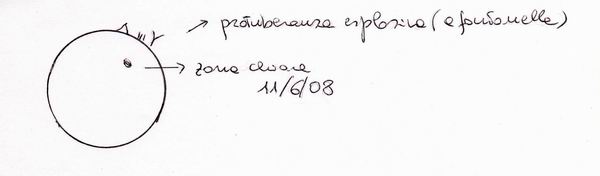 protuberanza esplosiva (a fontanella)
zona chiara
11/6/08